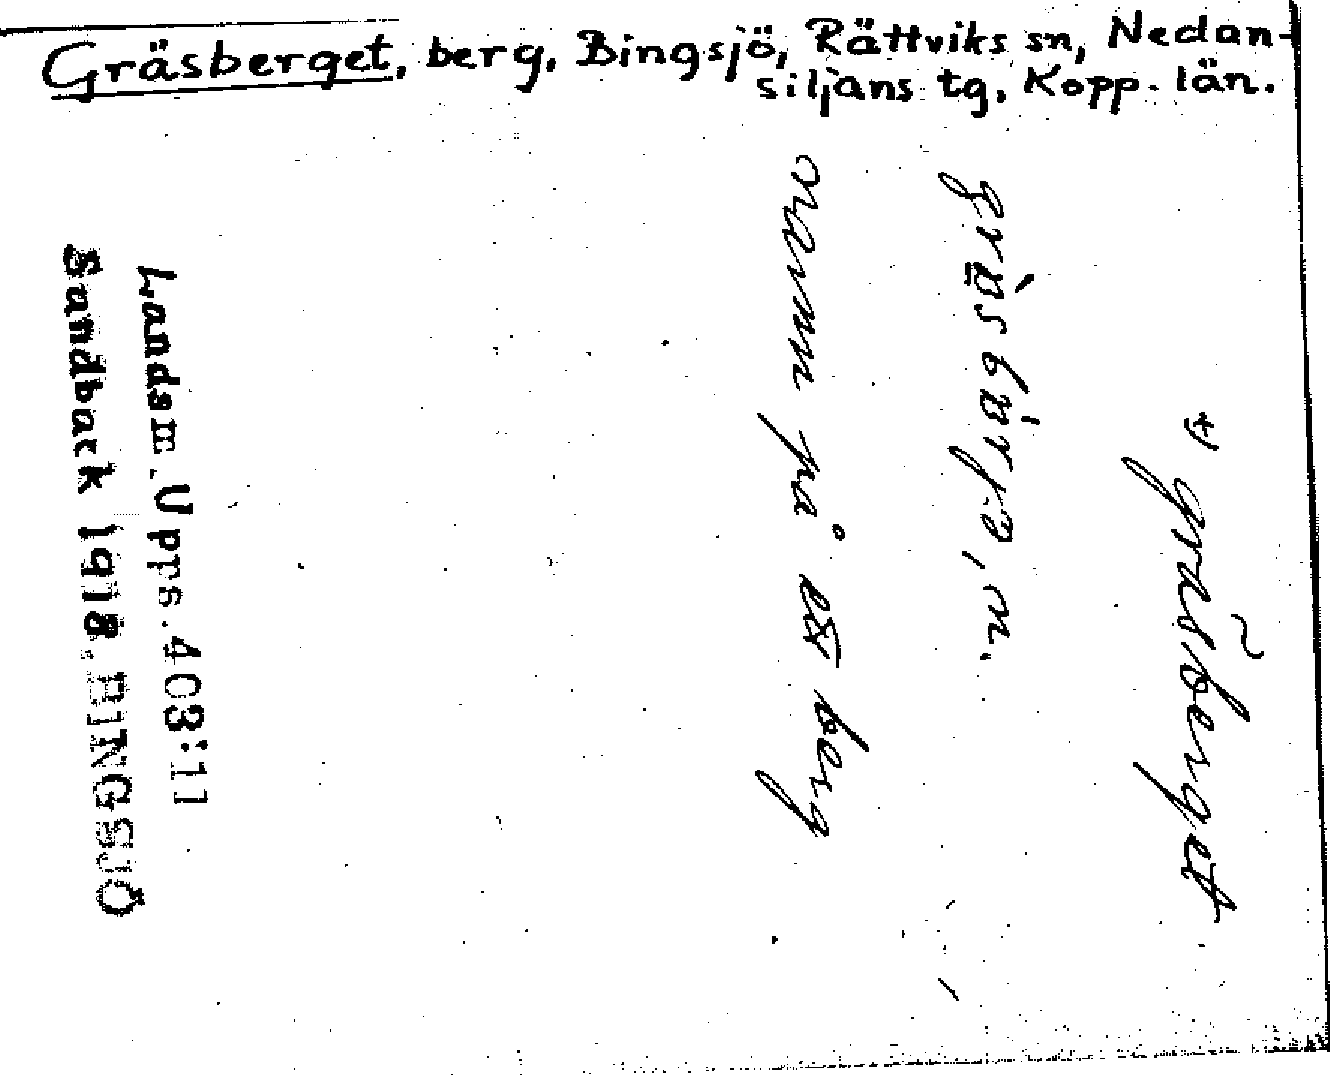 Gräsberget, berg, Bingsjö, Rättviks sn, Nedan-
siljans tg, Kopp. län.
*) gräsberget
namn på ett berg
Landsm. Upps. 403:11
Sandback 1918. BINGSJÖ